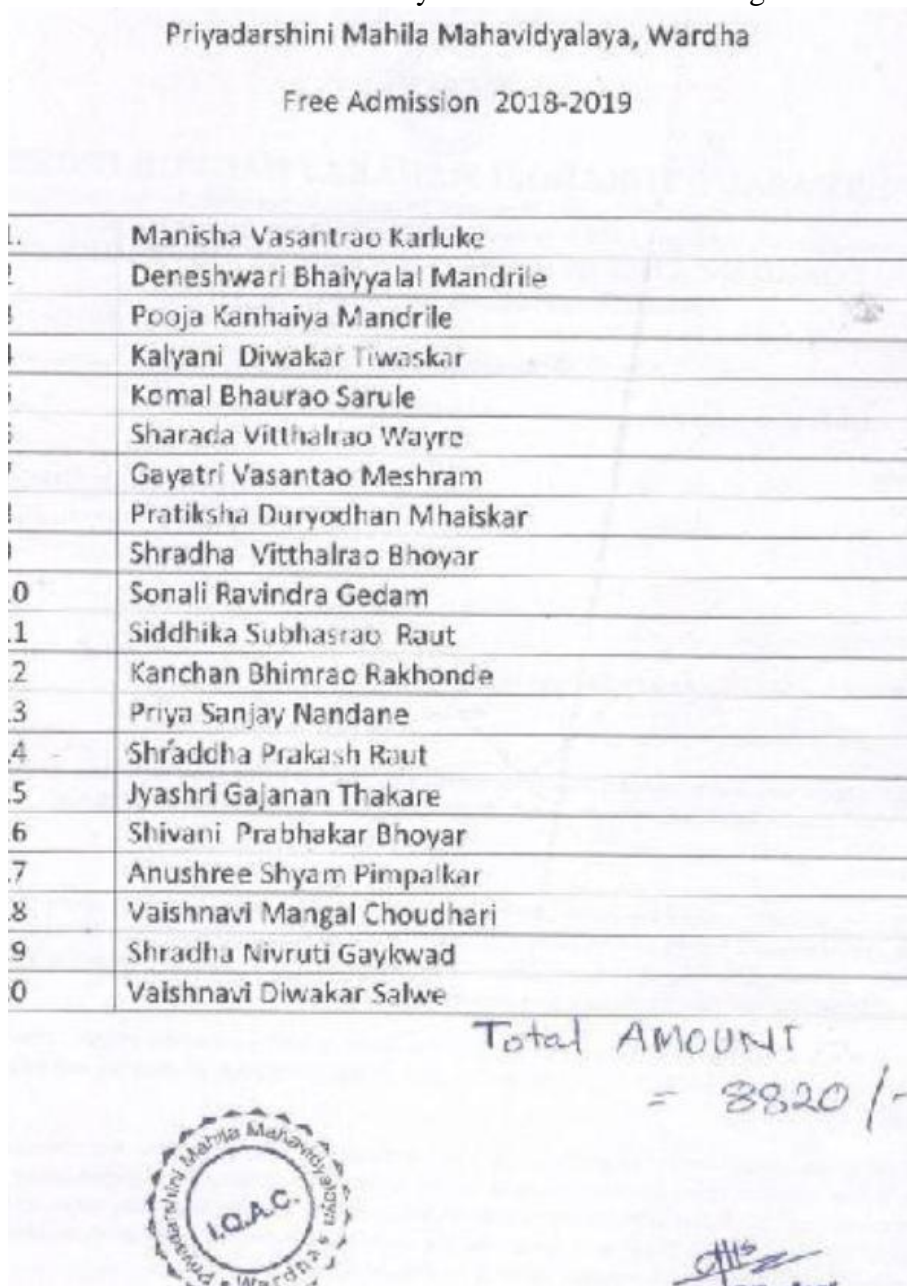 Priyadarshini Mahila Mahavidyalaya, Wardha
Free Admission 2018-2019
1. Manisha Vasantrao Karluke
2 Deneshwari Bhaiyyalal Mandrile
3 Pooja Kanhaiya Mandrile
4 Kalyani Diwakar Tiwaskar
5 Komal Bhaurao Sarule
6 Sharada Vitthalrao Wayre
7 Gayatri Vasantao Meshram
8 Pratiksha Duryodhan Mhaiskar
9 Shradha Vitthalrao Bhoyar
0 Sonali Ravindra Gedam
1 Siddhika Subhasrao Raut
2 Kanchan Bhimrao Rakhonde
3 Priya Sanjay Nandane
4 Shraddha Prakash Raut
5 Jyashri Gajanan Thakare
6 Shivani Prabhakar Bhoyar
7 Anushree Shyam Pimpalkar
8 Vaishnavi Mangal Choudhari
9 Shradha Nivruti Gaykwad
0 Vaishnavi Diwakar Salwe
Total AMOUNT
= 8820/-
Priyadarshini Mahila Mahavidyalaya
I.Q.A.C.
Wardha